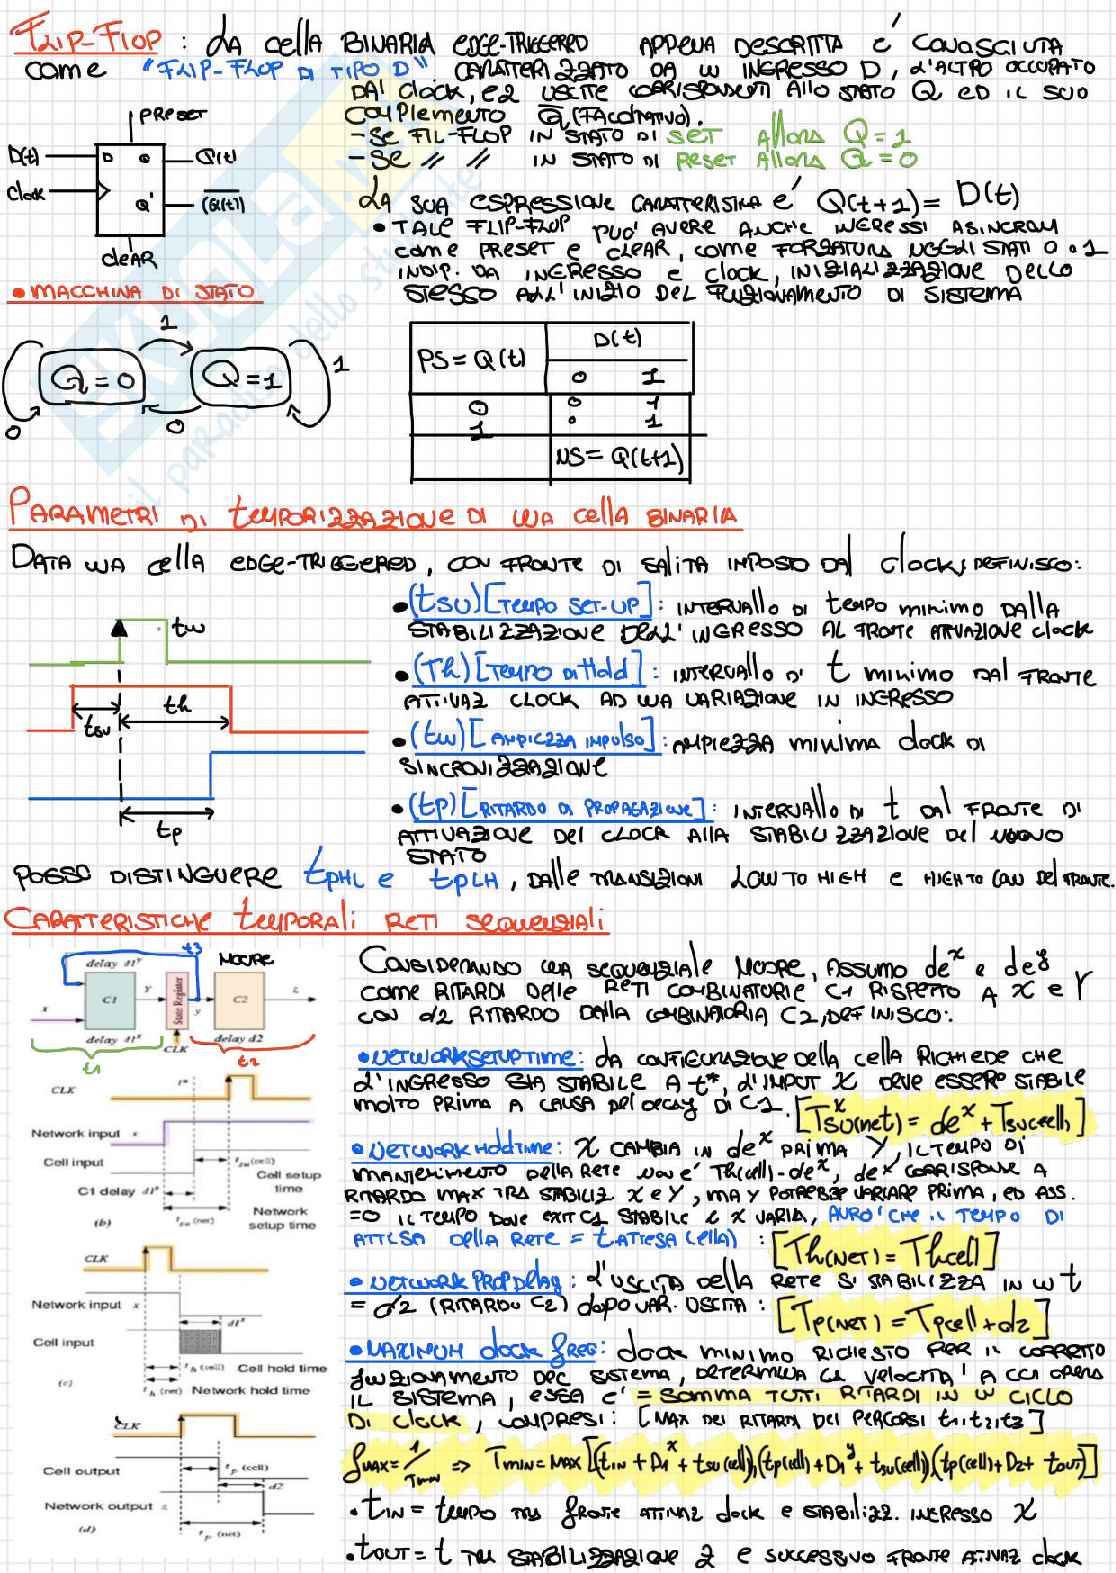 FLIP-FLOP : LA CELLA BINARIA EDGE-TRIGGERED APPENA DESCRITTA É CONOSCIUTA
COME "FLIP-FLOP DI TIPO D" CARATTERIZZATO DA UN INGRESSO D, L'ALTRO OCCUPATO
DAL CLOCK, E 2 USCITE CORRISPONDENTI ALLO STATO Q ED IL SUO
COMPLEMENTO Q (FACOLTATIVO).
- SE FIL-FLOP IN STATO DI SET ALLORA Q = 1
- SE // // IN STATO DI RESET ALLORA Q = 0
PRESET
D(t) D Q Q(t)
CLOCK Q' (Q(t))
CLEAR
LA SUA ESPRESSIONE CARATTERISTICA E' Q(t+1) = D(t)
• TALE FLIP-FLOP PUO' AVERE ANCHE INGRESSI ASINCRONI
COME PRESET E CLEAR, COME FORZATURA NEGLI STATI 0 o 1
INDIP. DA INGRESSO E CLOCK, INIZIALIZZAZIONE DELLO
STESSO ALL'INIZIO DEL FUNZIONAMENTO DI SISTEMA
• MACCHINA DI STATO
1
Q = 0 Q = 1 1
0 0
PS = Q(t) D(t)
0 1
0 0 1
1 0 1
NS = Q(t+1)
PARAMETRI DI TEMPORIZZAZIONE DI UNA CELLA BINARIA
DATA UNA CELLA EDGE-TRIGGERED, CON FRONTE DI SALITA IMPOSTO DAL CLOCK, DEFINISCO:
• (tsu) [TEMPO SET-UP] : INTERVALLO DI TEMPO MINIMO DALLA
STABILIZZAZIONE DELL'INGRESSO AL FRONTE ATTIVAZIONE CLOCK
• (Th) [TEMPO DI HOLD] : INTERVALLO DI t MINIMO DAL FRONTE
ATTIVAZ CLOCK AD UNA VARIAZIONE IN INGRESSO
• (tw) [AMPIEZZA IMPULSO] : AMPIEZZA MINIMA CLOCK DI
SINCRONIZZAZIONE
• (tp) [RITARDO DI PROPAGAZIONE] : INTERVALLO DI t DAL FRONTE DI
ATTIVAZIONE DEL CLOCK ALLA STABILIZZAZIONE DEL NUOVO
STATO
tw
tsu th
tp
POSSO DISTINGUERE tPHL E tPLH, DALLE TRANSIZIONI LOW TO HIGH E HIGH TO LOW DEL FRONTE.
CARATTERISTICHE TEMPORALI RETI SEQUENZIALI
CONSIDERANDO UNA SEQUENZIALE MOORE, ASSUMO de^x E de^y
COME RITARDI DELLE RETI COMBINATORIE C1 RISPETTO A X E Y
CON d2 RITARDO DALLA COMBINATORIA C2, DEFINISCO:
• NETWORK SETUP TIME: LA CONFIGURAZIONE DELLA CELLA RICHIEDE CHE
L'INGRESSO SIA STABILE A t*, L'INPUT X DEVE ESSERE STABILE
MOLTO PRIMA A CAUSA DEL DELAY DI C1. [T^x SU(NET) = de^x + TSU(CELL)]
• NETWORK HOLD TIME: X CAMBIA IN de^x PRIMA Y, IL TEMPO DI
MANTENIMENTO DELLA RETE NON E' Th(CELL) - de^x, de^x CORRISPONDE A
RITARDO MAX TRA STABILIZ X E Y, MA Y POTREBBE VARIARE PRIMA, ED ASS.
=0 IL TEMPO DOVE EXIT C1 STABILE E X VARIA, AVRO' CHE IL TEMPO DI
ATTESA DELLA RETE = t ATTESA (CELLA) : [Th(NET) = Thcell]
• NETWORK PROP DELAY: L'USCITA DELLA RETE SI STABILIZZA IN UN t
= d2 (RITARDO C2) DOPO VAR. USCITA : [Tp(NET) = Tpcell + d2]
• MAXIMUM CLOCK FREQ: CLOCK MINIMO RICHIESTO PER IL CORRETTO
FUNZIONAMENTO DEL SISTEMA, DETERMINA LA VELOCITA' A CUI OPERA
IL SISTEMA, ESSA E' = SOMMA TUTTI RITARDI IN UN CICLO
DI CLOCK, COMPRESI : [MAX DEI RITARDI DEI PERCORSI t1, t2, t3]
fMAX = 1/TMIN => TMIN = MAX [(tIN + D1^x + tSU(CELL)), (tp(CELL) + D1^y + tsu(CELL)), (tp(CELL) + D2 + tOUT)]
• tIN = TEMPO TRA FRONTE ATTIVAZ CLOCK E STABILIZZ. INGRESSO X
• tOUT = t TRA STABILIZZAZIONE Z E SUCCESSIVO FRONTE ATTIVAZ CLOCK
t3 MOORE
delay d1^y
C1 y State Register y C2 z
x
delay d1^x CLK delay d2
t1 t2
CLK t*
Network input x
Cell input t su (cell)
Cell setup time
C1 delay d1^x
Network setup time
(b) t su (net)
CLK
Network input x
d1^x
Cell input
t h (cell) Cell hold time
(c) t h (net) Network hold time
CLK
Cell output t p (cell)
d2
Network output z
(d) t p (net)